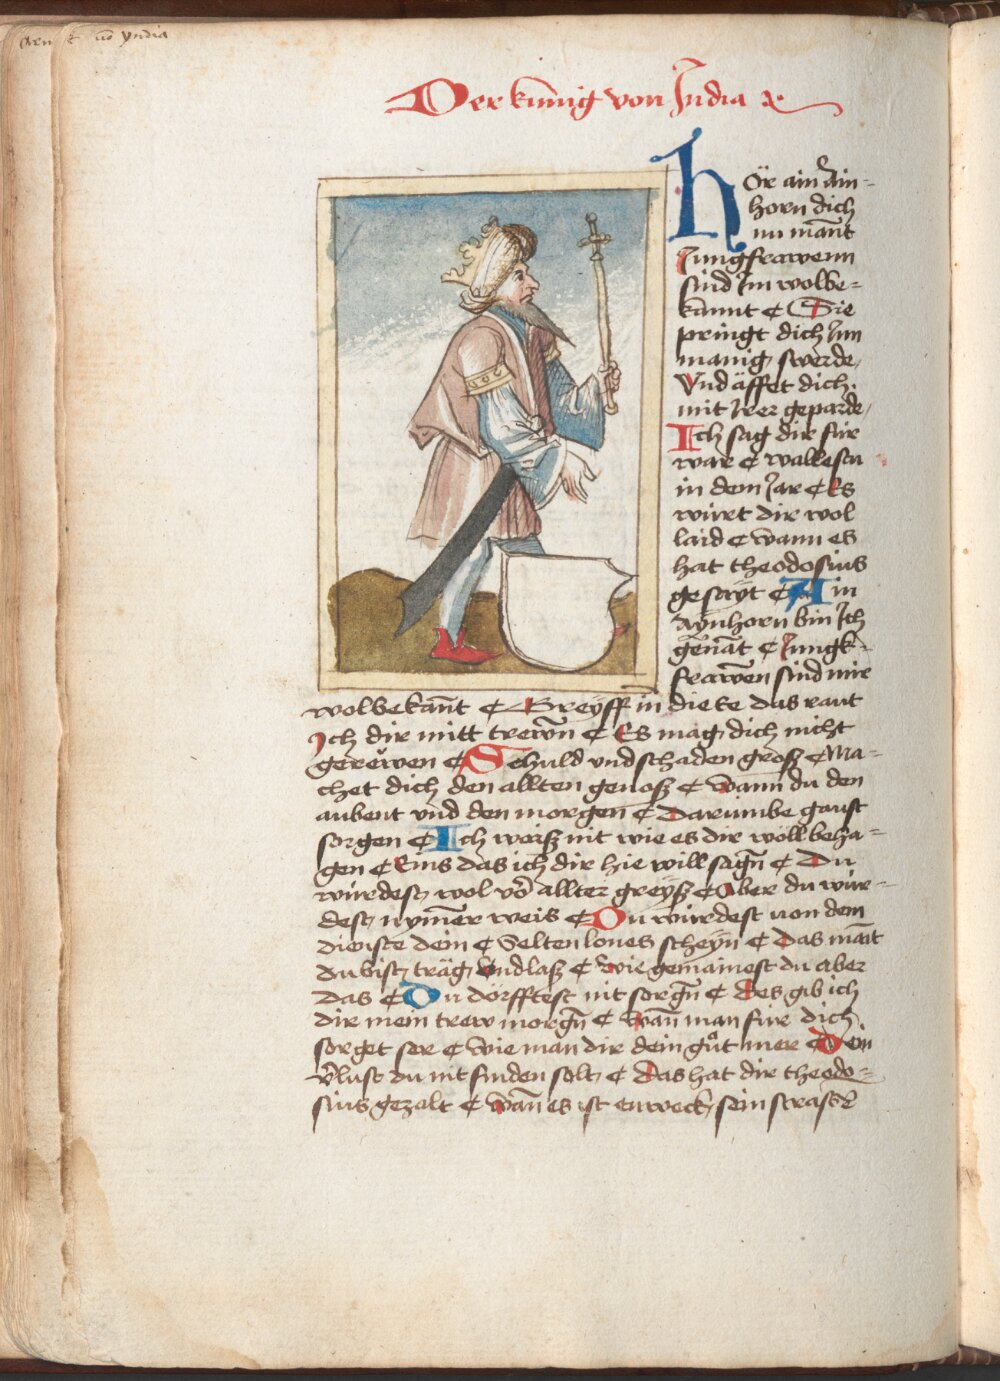 vō yndia
Der kunig von India
Hör ain ain-
horn dich
nu mant
Jungfrawenn
sind Im wolbe-
kannt ¢ Die
pringt dich Inn
manig swerde
Vnd äffet dich
mit Irer geparde
Ich sag dir für
war ¢ wallestu
in dem Jar ¢ Es
würt dir wol
laid ¢ wann es
hat theodosius
gesayt ¢ Ain
aynhorn bin Ich
genāt ¢ Jungk-
frawen sind mir
wolbekant ¢ Greyff in die ee das raut
Ich dir mitt trewn ¢ Es mag dich nicht
gerewen ¢ Schuld vnd schaden gross ¢ Ma-
chet dich den allten genoss ¢ wann du den
aubent vnd den morgen ¢ Darumbe gaust
sorgen ¢ Ich weiss nit wie es dir woll beha-
gen ¢ Eins das ich dir hie will sagn ¢ Du
würdest wol vō allter greyss ¢ Aber du wür-
dest nymer weis ¢ Du würdest von dem
dienste dein ¢ Selten lones scheyn ¢ Das mātt
du bist träg vnd lass ¢ wie gemainest du aber
das ¢ Du dörfftest nit sorgn ¢ Des gib ich
dir mein trew morgn ¢ wan man für dich
sorget ser ¢ wie man dir dein gut mer ¢ Dein
v̄lust du nit finden solt ¢ Das hat dir theodo-
sius gezalt ¢ wan es ist enweck sein